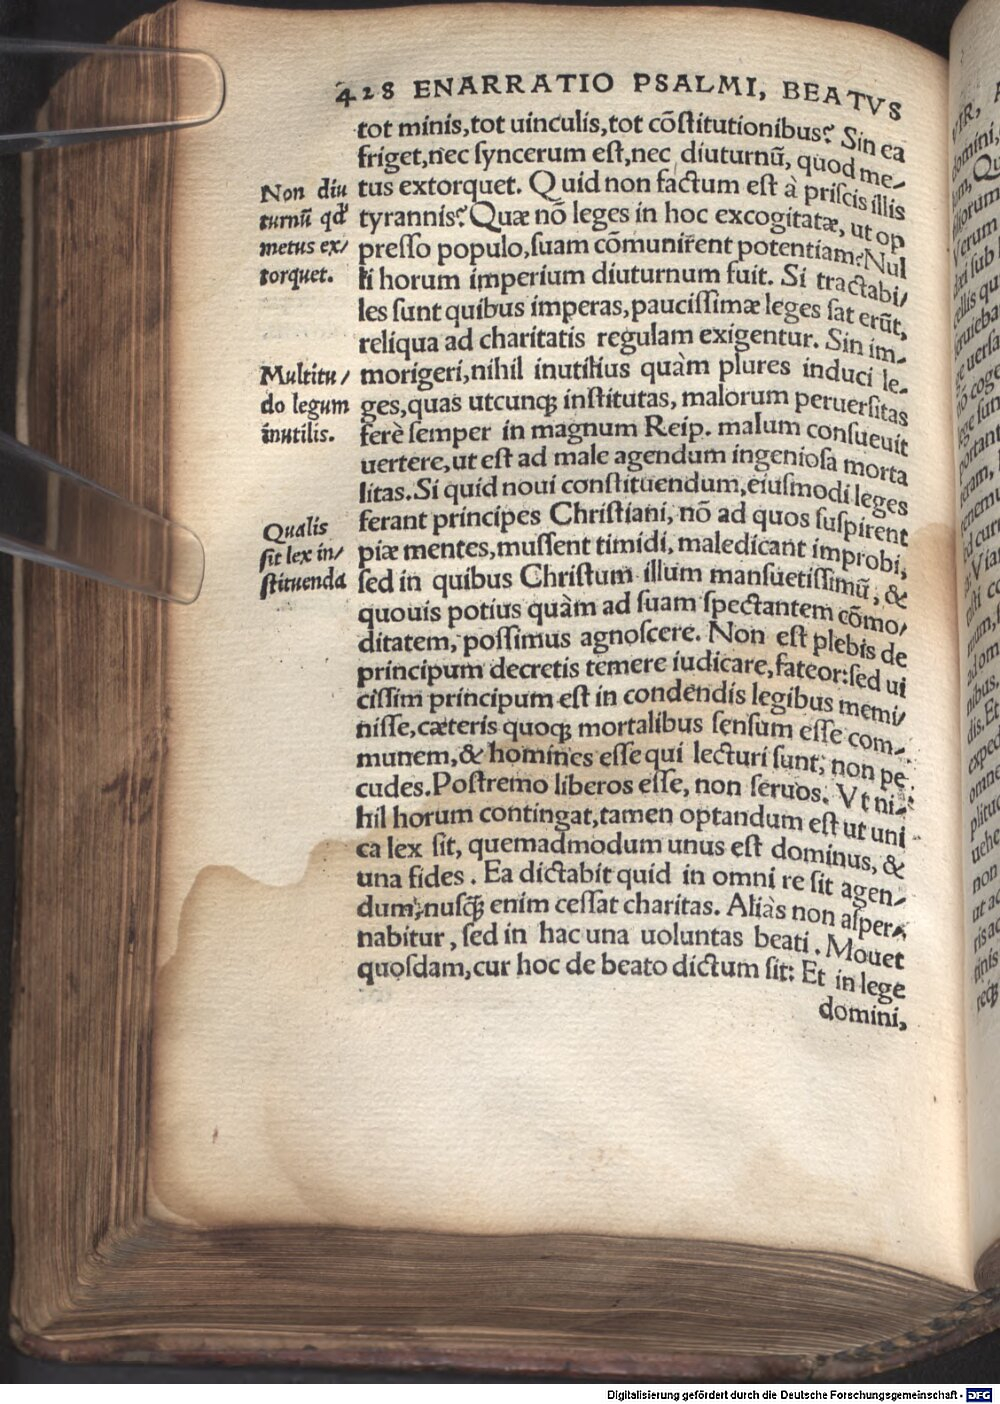 428 ENARRATIO PSALMI, BEATVS
tot minis,tot uinculis,tot cōſtitutionibus? Sin ea
friget,nec ſyncerum eſt,nec diuturnū, quod me-
tus extorquet. Quid non factum eſt à priſcis illis
tyrannis? Quæ nō leges in hoc excogitatæ, ut op
preſſo populo,ſuam cōmunirent potentiam? Nul
li horum imperium diuturnum fuit. Si tractabi/
les ſunt quibus imperas,pauciſſimæ leges ſat erūt,
reliqua ad charitatis regulam exigentur. Sin im-
morigeri,nihil inutilius quàm plures induci le-
ges,quas utcunqꝫ inſtitutas, malorum peruerſitas
ferè ſemper in magnum Reip. malum conſueuit
uertere,ut eſt ad male agendum ingenioſa morta
litas. Si quid noui conſtituendum,eiuſmodi leges
ferant principes Chriſtiani, nō ad quos ſuſpirent
piæ mentes,muſſent timidi, maledicant improbi,
ſed in quibus Chriſtum illum manſuetiſſimū, &
quouis potius quàm ad ſuam ſpectantem cōmo/
ditatem, poſſimus agnoſcere. Non eſt plebis de
principum decretis temere iudicare,fateor:ſed ui
ciſſim principum eſt in condendis legibus memi/
niſſe,cæteris quoqꝫ mortalibus ſenſum eſſe com-
munem,& homines eſſe qui lecturi ſunt, non pe
cudes. Poſtremo liberos eſſe, non ſeruos. Vt ni-
hil horum contingat,tamen optandum eſt ut uni
ca lex ſit, quemadmodum unus eſt dominus, &
una fides. Ea dictabit quid in omni re ſit agen-
dum, nuſq̄ꝫ enim ceſſat charitas. Aliàs non aſper-
nabitur, ſed in hac una uoluntas beati. Mouet
quoſdam,cur hoc de beato dictum ſit: Et in lege
domini,
Non diu
turnū qd'
metus ex/
torquet.
Multitu/
do legum
inutilis.
Qualis
ſit lex in/
ſtituenda
Digitalisierung gefördert durch die Deutsche Forschungsgemeinschaft - DFG